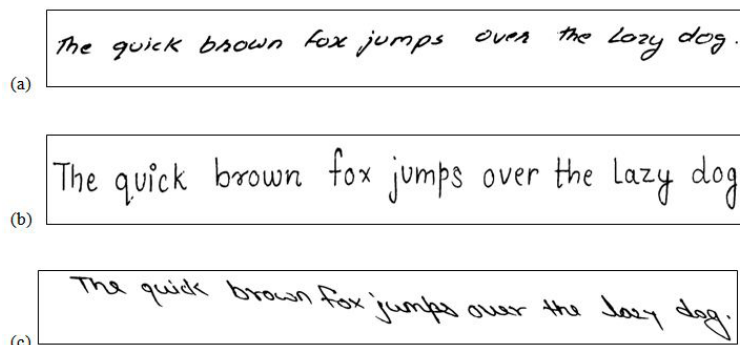 The quick brown fox jumps over the lazy dog.
(a)
The quick brown fox jumps over the lazy dog
(b)
The quick brown fox jumps over the lazy dog.
(c)